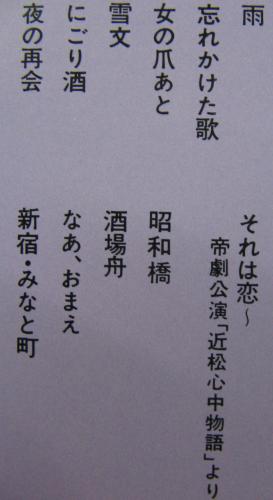 雨
忘れかけた歌
女の爪あと
雪文
にごり酒
夜の再会
それは恋~
帝劇公演「近松心中物語」より
昭和橋
酒場舟
なあ、おまえ
新宿・みなと町